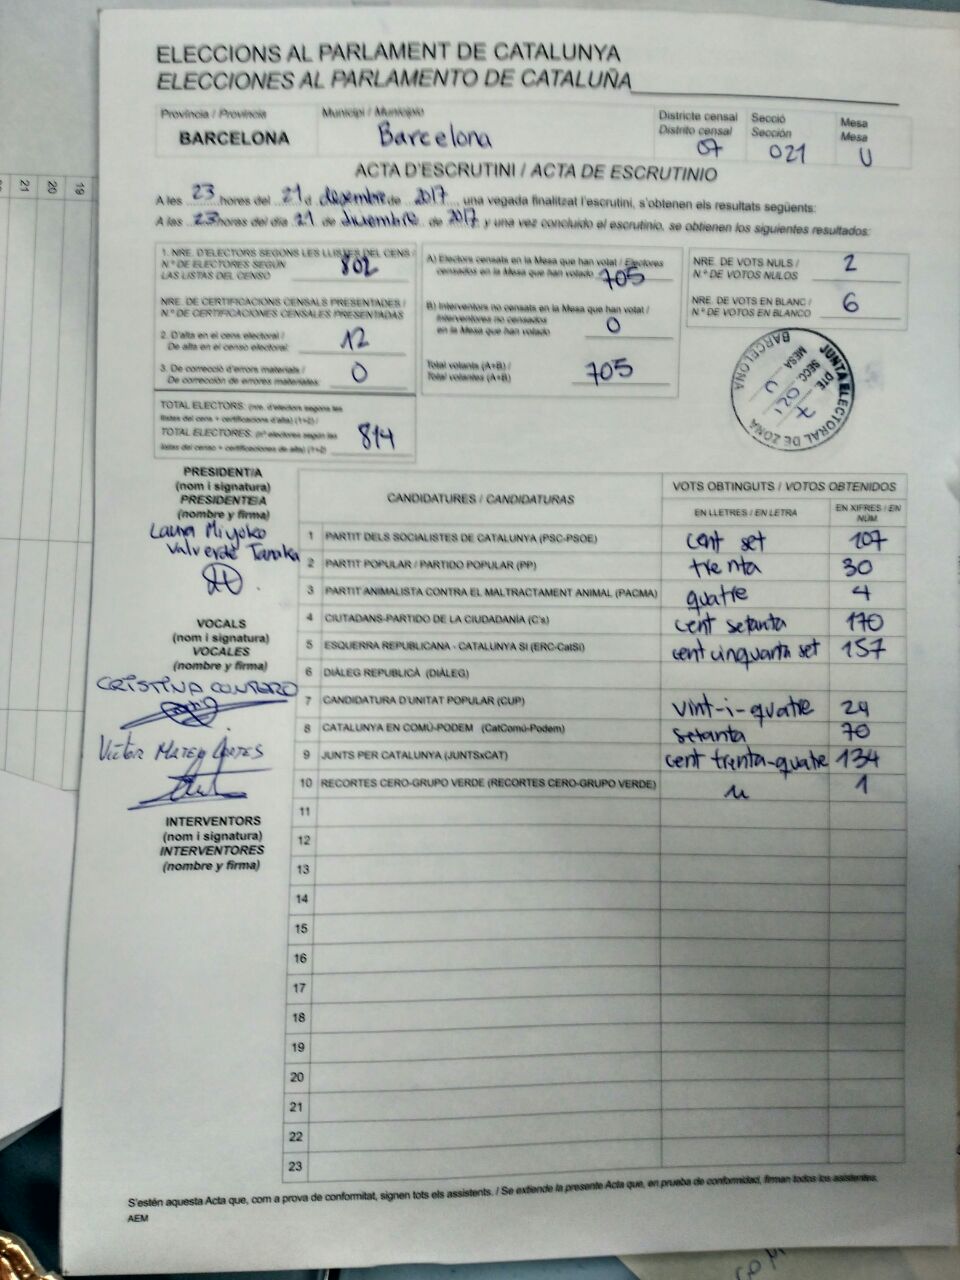 ELECCIONS AL PARLAMENT DE CATALUNYA
ELECCIONES AL PARLAMENTO DE CATALUÑA
Província / Provincia
BARCELONA
Municipi / Municipio
Barcelona
Districte censal
Distrito censal
07
Secció
Sección
021
Mesa
Mesa
U
ACTA D'ESCRUTINI / ACTA DE ESCRUTINIO
A les 23 hores del 21 d desembre de 2017, una vegada finalitzat l'escrutini, s'obtenen els resultats següents:
A las 23 horas del día 21 de diciembre de 2017 y una vez concluido el escrutinio, se obtienen los siguientes resultados:
1. NRE. D'ELECTORS SEGONS LES LLISTES DEL CENS /
N.º DE ELECTORES SEGÚN
LAS LISTAS DEL CENSO
802
NRE. DE CERTIFICACIONS CENSALS PRESENTADES /
N.º DE CERTIFICACIONES CENSALES PRESENTADAS
2. D'alta en el cens electoral /
De alta en el censo electoral:
12
3. De correcció d'errors materials /
De corrección de errores materiales:
0
TOTAL ELECTORS: (nre. d'electors segons les
llistes del cens + certificacions d'alta) (1+2) /
TOTAL ELECTORES: (nº electores según las
listas del censo + certificaciones de alta) (1+2)
814
A) Electors censats en la Mesa que han votat / Electores
censados en la Mesa que han votado
705
B) Interventors no censats en la Mesa que han votat /
Interventores no censados
en la Mesa que han votado
0
Total votants (A+B) /
Total votantes (A+B)
705
NRE. DE VOTS NULS /
N.º DE VOTOS NULOS
2
NRE. DE VOTS EN BLANC /
N.º DE VOTOS EN BLANCO
6
JUNTA ELECTORAL DE ZONA
BARCELONA
DTE.
SECC.
MESA
PRESIDENT/A
(nom i signatura)
PRESIDENTE/A
(nombre y firma)
Laura Miyoko
Valverde Tanaka
VOCALS
(nom i signatura)
VOCALES
(nombre y firma)
CRISTINA
Víctor
INTERVENTORS
(nom i signatura)
INTERVENTORES
(nombre y firma)
CANDIDATURES / CANDIDATURAS
VOTS OBTINGUTS / VOTOS OBTENIDOS
EN LLETRES / EN LETRA
EN XIFRES / EN NÚM.
1 PARTIT DELS SOCIALISTES DE CATALUNYA (PSC-PSOE) cent set 107
2 PARTIT POPULAR / PARTIDO POPULAR (PP) trenta 30
3 PARTIT ANIMALISTA CONTRA EL MALTRACTAMENT ANIMAL (PACMA) quatre 4
4 CIUTADANS-PARTIDO DE LA CIUDADANÍA (C's) cent setanta 170
5 ESQUERRA REPUBLICANA - CATALUNYA SÍ (ERC-CatSí) cent cinquanta set 157
6 DIÀLEG REPUBLICÀ (DIÀLEG)
7 CANDIDATURA D'UNITAT POPULAR (CUP) vint-i-quatre 24
8 CATALUNYA EN COMÚ-PODEM (CatComú-Podem) setanta 70
9 JUNTS PER CATALUNYA (JUNTSxCAT) cent trenta-quatre 134
10 RECORTES CERO-GRUPO VERDE (RECORTES CERO-GRUPO VERDE) u 1
11
12
13
14
15
16
17
18
19
20
21
22
23
S'estén aquesta Acta que, com a prova de conformitat, signen tots els assistents. / Se extiende la presente Acta que, en prueba de conformidad, firman todos los asistentes.
AEM
21
20
19